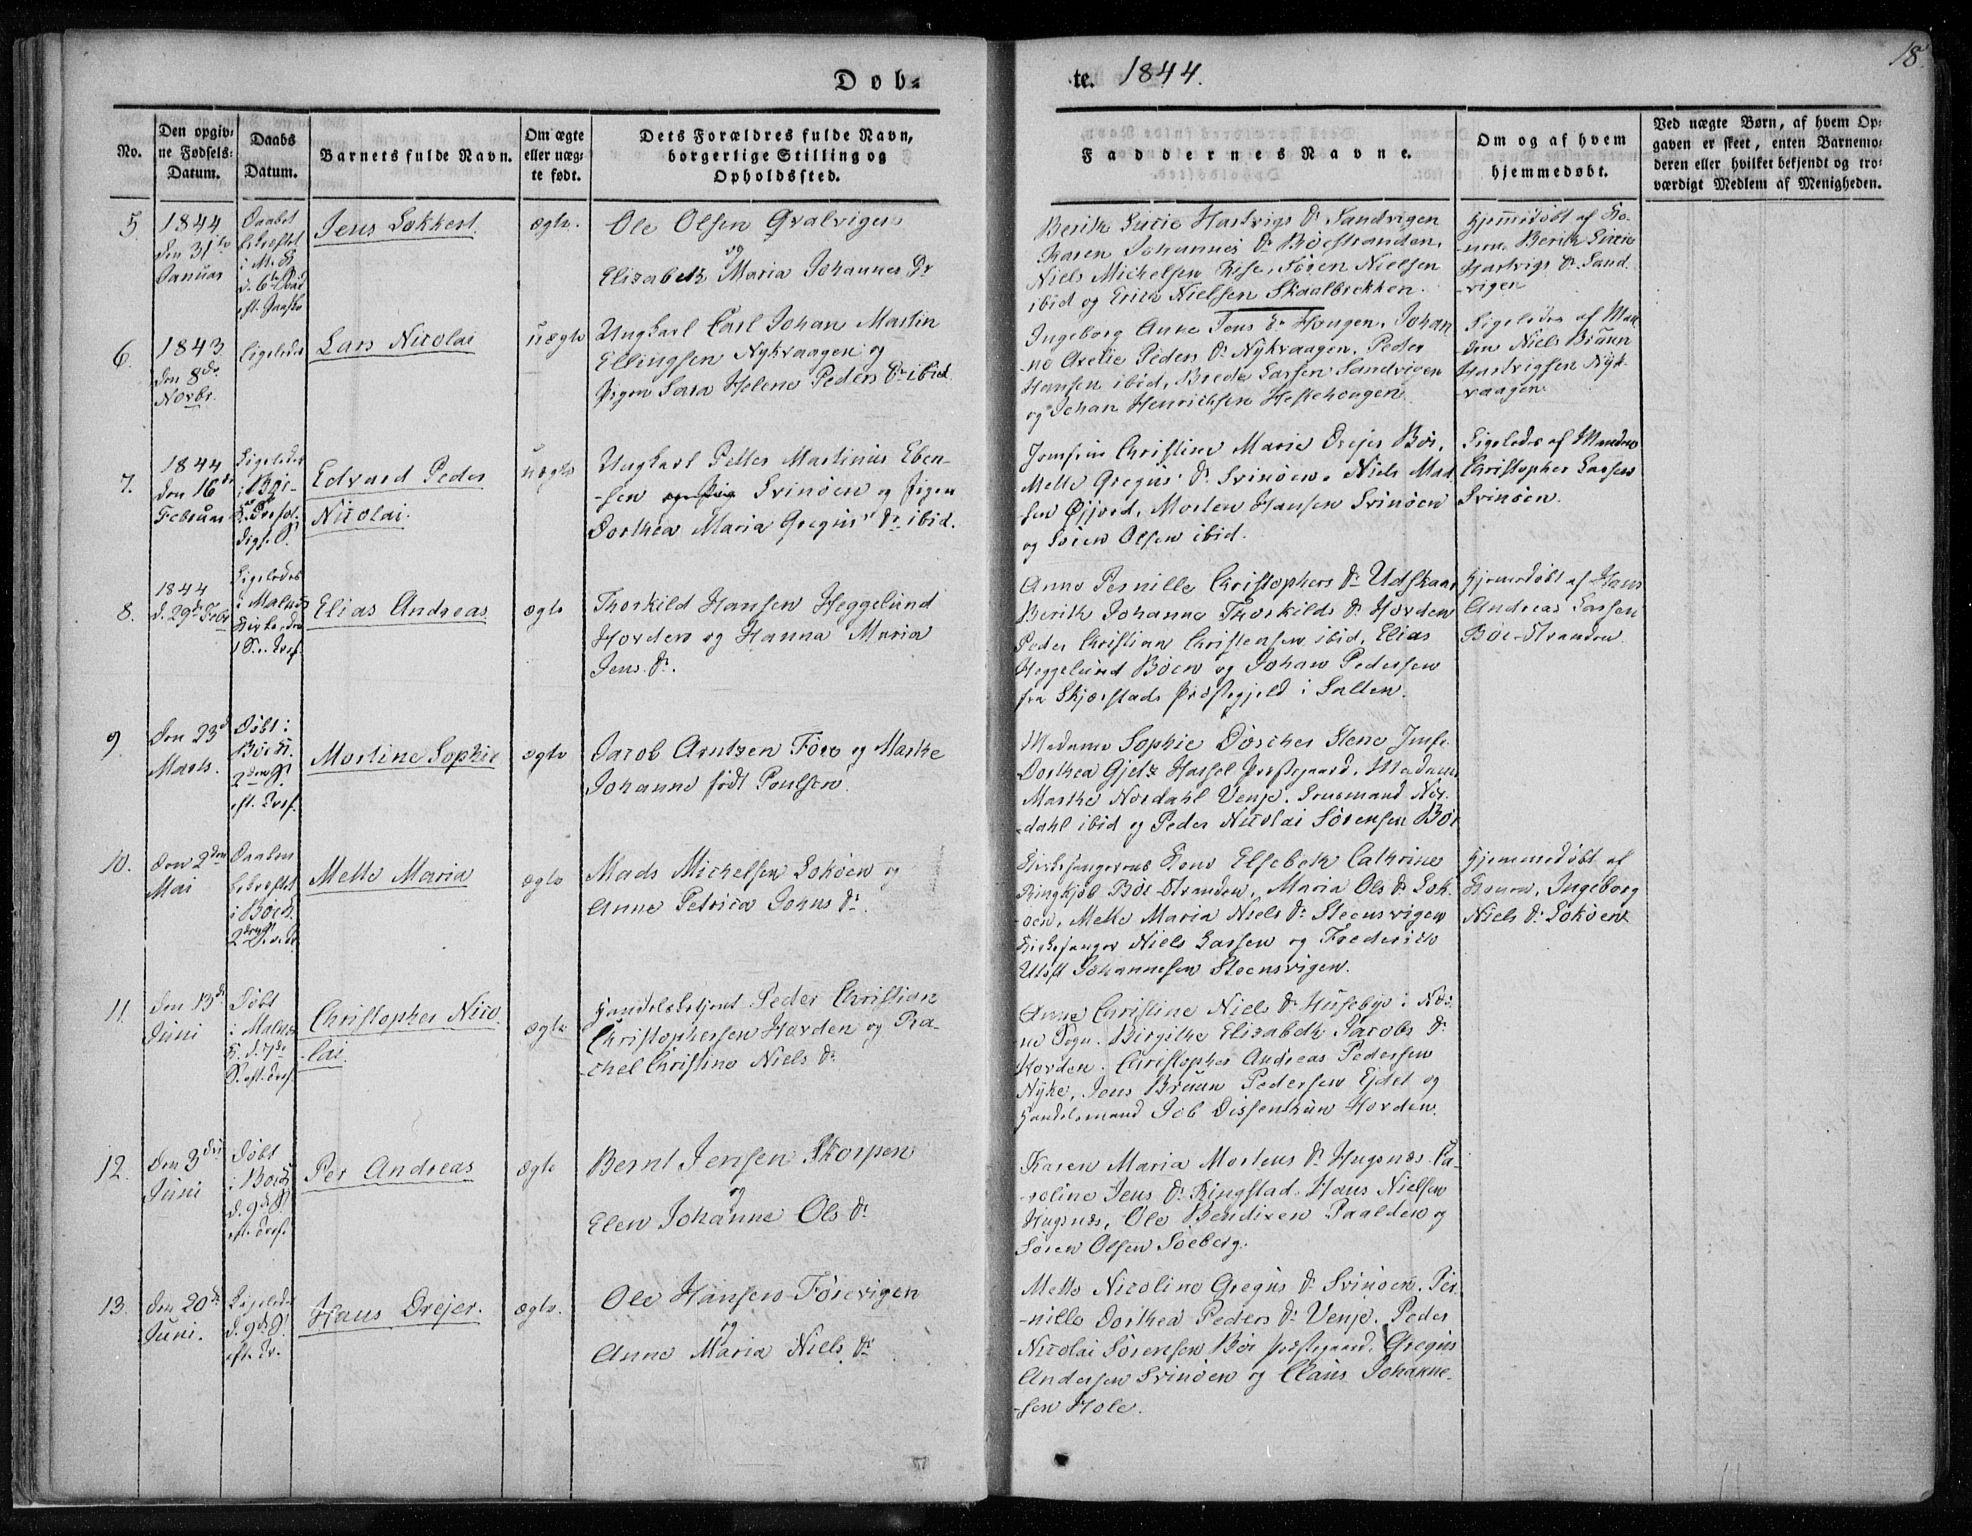 18.
Døb-
te. 1844.
No.
Den opgiv-
ne Fødsels-
Datum.
Daabs
Datum.
Barnets fulde Navn.
Om ægte
eller uæg-
te født.
Dets Forældres fulde Navn,
borgerlige Stilling og
Opholdssted.
Faddernes Navne.
Om og af hvem
hjemmedøbt.
Ved uægte Børn, af hvem Op-
gaven er skeet, enten Barnemo-
deren eller hvilket bekjendt og tro-
værdigt Medlem af Menigheden.
5.
1844
den 31te
Januar
Daabet
bekræftet
i M. K.
Jens Lokkert.
ægte.
Ole Olsen Qvalvigen
og
Elisabeth Maria Johannes Dr
Berith Lucie Hartvigs Dr Sandvigen
Karen Johannes Dr Bøestranden,
Niels Michelsen Rise, Søren Nielsen
ibid og Erich Nielsen Skaalbrekken.
Hjemmedøbt af Ko-
nen Berith Lucie
Hartvigs Dr Sand-
vigen
6.
1843
den 8de
Novbr.
ligeledes
Lars Nicolai
uægte
Ungkarl Carl Johan Martin
Ellingsen Nykvaagen og
Pigen Sara Helene Peders Dr ibid
Ingeborg Anne Jens Dr Hougen, Johan-
ne Grelie Peders Dr Nykvaagen, Peder
Hansen ibid, Brede Larsen Sandvigen
og Johan Henrichsen Hestehougen
Ligeledes af Man-
den Niels Bruun
Hartvigsen Nyk-
vaagen
7.
1844
den 16de
Februar
Ligeledes
i Böe-
Edvard Peder
Nicolai.
uægte
Ungkarl Petter Martinus Eben-
sen og Pig Svinøen og Pigen
Dorthea Maria Gregus Dr ibid.
Jomfrue Christine Marie Drejer Böe,
Mette Gregus Dr Svinöen, Niels Mad-
sen Øijord, Morten Hansen Svinöen
og Sören Olsen ibid.
Ligeledes af Manden
Christopher Larsen
Svinöen.
8.
1844
d. 29de Febr
Ligeledes
i Malnes
Kirke, den
Elias Andreas
ægte
Thorkild Hansen Heggelund
Hovden og Hanna Maria
Jens Dr.
Anne Pernille Christophers Dr Udskaar
Berith Johanna Thorkilds Dr Hovden
Peder Christian Christensen ibid, Elias
Heggelund Böen og Johan Pedersen
fra Skjærstads Præstegjeld i Salten.
Hjemmedøbt af Hans
Andreas Larsen
Böe-Stranden
9
den 23d
Marts.
Döbt i
Böe K.
Martine Sophie
ægte
Jacob Arntzen Före og Marthe
Johanne födt Poulsen.
Madame Sophie Döscher Steno Jmfr.
Dorthea Gjetz Hassel Præstegaard, Madame
Marthe Nordahl Venje, Lensmand Nor-
dahl ibid og Peder Nicolai Sörensen Böe
10.
den 2den
Mai
Daaben
bekræftet
i Böe K.
Mette Maria
ægte
Mads Michelsen Lokøen og
Anne Petrica Johns Dr.
Kirkesangerens Kone Elsebeth Cathrine
Ringkjöb Böe-Stranden, Maria Ols Dr Lok-
öen, Mette Maria Niels Dr Steensvigen
Kirkesanger Niels Larsen og Frederich
Utoft Johannesen Steensvigen.
Hjemmedøbt af
Konen, Ingeborg
Niels Dr Lokøen
11.
den 13de
Juni
Döbt
i Malnes
K. d. 7de
S. eft. Tref.
Christopher Nico-
lai
ægte
Handelsbetjent Peder Christian
Christophersen Hovden og Ra-
chel Christine Niels Dr
Anne Christine Niels Dr Husebye i Næs-
ne Sogn. Birgithe Elisabeth Jacobs Dr
Hovden. Christopher Andreas Pedersen
Nyke, Jens Bruun Pedersen Ejdet og
Handelsmand Job Dissenthun Hovden.
12.
den 3die
Juni
Döbt
i Böe K.
d. 9de S.
eft. Tref.
Per Andreas
ægte
Bernt Jensen Skorpen
og
Elen Johanne Ols Dr
Karen Maria Mortens Dr Hugsnæs, Ca-
roline Jens Dr Ringstad, Hans Nielsen
Hugsnæs, Ole Bendixen Paalden og
Sören Olsen Söeberg.
13.
den 20de
Juni.
Ligeledes
d. 9de S.
eft. Tr.
Hans Drejer.
ægte.
Ole Hansen Förevigen
og
Anne Maria Niels Dr
Mette Nicoline Gregus Dr Svinöen. Per-
nille Dorthea Peders Dr Venje, Peder
Nicolai Sörensen Böe Præstegaard, Gregus
Andersen Svinöen og Claus Johanne-
sen Hole.